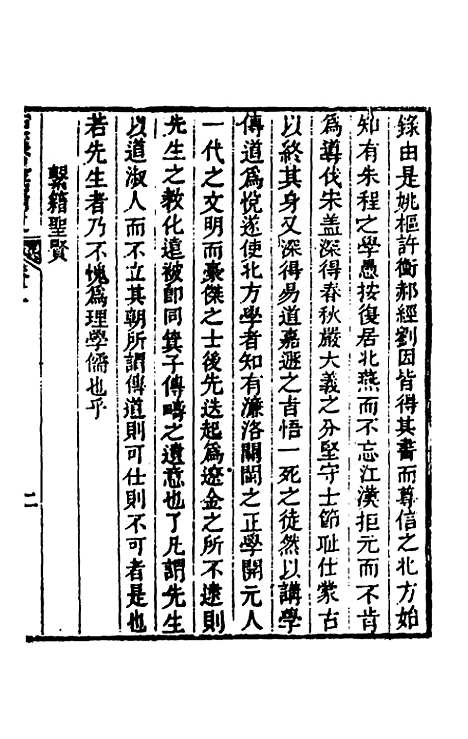 錄由是姚樞許衡郝經劉因皆得其書而尊信之北方始
知有朱程之學愚按復居北燕而不忘江漢拒元而不肯
為導伐宋盖深得春秋嚴大義之分堅守士節恥仕蒙古
以終其身又深得易道嘉遯之吉悟一死之徒然以講學
傳道為悅遂使北方學者知有濂洛關閩之正學開元人
一代之文明而豪傑之士後先迭起為遼金之所不逮則
先生之教化遠被卽同箕子傳疇之遺意也了凡謂先生
以道淑人而不立其朝所謂傳道則可仕則不可者是也
若先生者乃不愧為理學儒也乎
繫籍聖賢
二